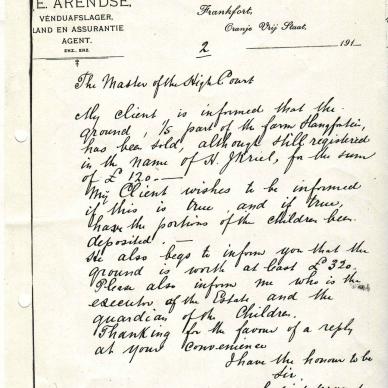 E. ARENDSE,
VENDUAFSLAGER,
LAND EN ASSURANTIE
AGENT.
ENZ., ENZ.
Frankfort,
Oranje Vrij Staat,
2 191
The Master of the High Court
My client is informed that the
ground, 1/5 part of the farm
has been sold, although still registered
in the name of H. J Kriel, for the sum
of £ 120.—
My Client wishes to be informed
if this is true and if true,
have the portions of the children been
deposited.—
He also begs to inform you that the
ground is worth at least £ 320.
Please also inform me who is the
executor of the Estate and the
guardian of the Children.
Thanking for the favour of a reply
at your convenience
I have the honour to be
Sir,